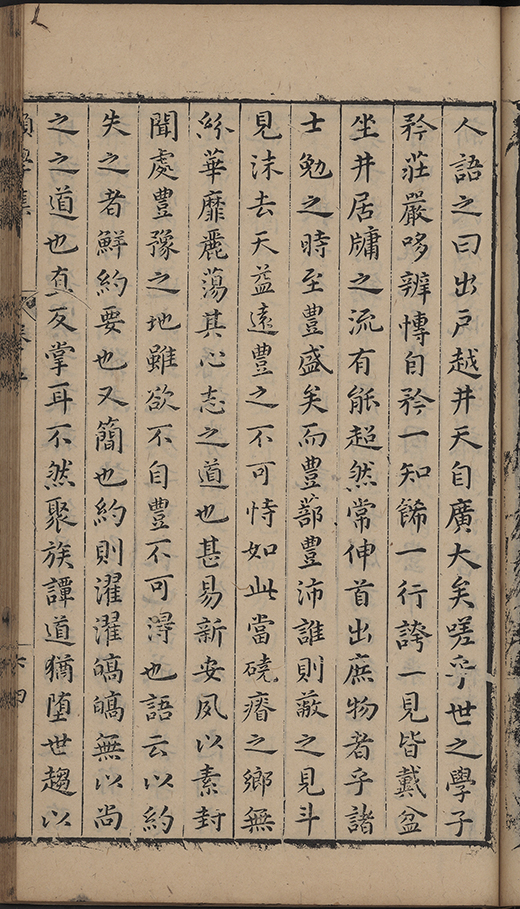 人語之曰出戶越井天自廣大矣嗟乎世之學子
矜莊嚴哆辨慱自矜一知餙一行誇一見皆戴盆
坐井居牗之流有能超然常伸首出庶物者乎諸
士勉之時至豊盛矣而豊蔀豊沛誰則蔽之見斗
見沬去天益遠豊之不可恃如此當磽瘠之鄉無
紛華靡麗蕩其心志之道也甚易新安夙以素封
聞處豊豫之地雖欲不自豊不可淂也語云以約
失之者鮮約要也又簡也約則濯濯皜皜無以尚
之之道也直反掌耳不然聚族譚道猶墮世趨以